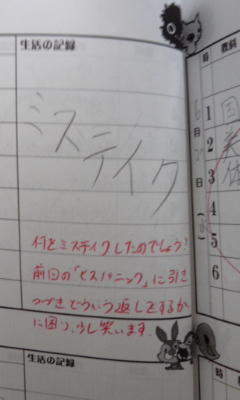 生活の記録
ミステイク
何をミステイクしたのでしょう?
前回の「ヒスパニック」に引き
つづきどういう返しをするか
に困り、少し笑います。
生活の記録
時
教科
月
日
1 国
2
3
4
5
6
時